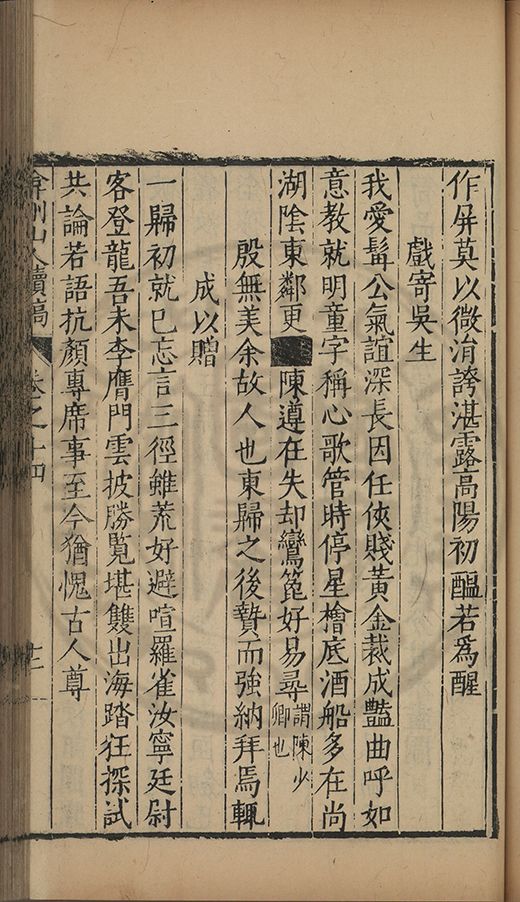 作屏莫以微涓誇湛露高陽初醖若爲醒
戲寄吳生
我愛髯公氣誼深長因任俠賤黃金裁成豔曲呼如
意教就明童字稱心歌管時停星檜底酒船多在尚
湖陰東鄰更陳遵在失却鸞箆好易尋謂陳少卿也
殷無美余故人也東歸之後贄而強納拜焉輒
成以贈
一歸初就巳忘言三徑雖荒好避喧羅雀汝寧廷尉
客登龍吾未李膺門雲披勝覽堪雙出海踏狂探試
共論若語抗顏專席事至今猶愧古人尊
弇州山人續稿 卷之十四